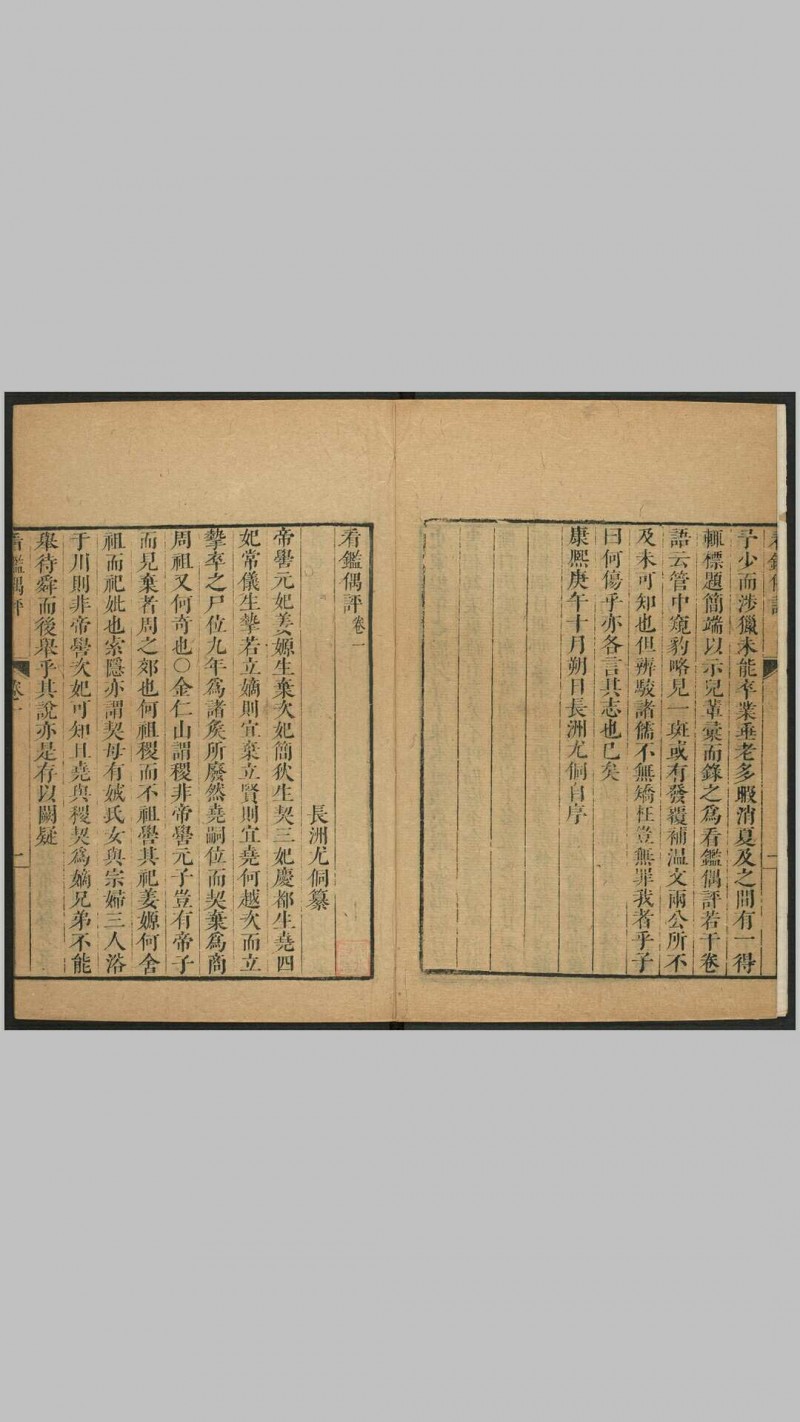 予少而涉獵未能卒業垂老多暇消夏及之間有一得
輒標題簡端以示兒輩彙而錄之為看鑑偶評若干卷
語云管中窺豹略見一斑或有發覆補溫文兩公所不
及未可知也但辨駁諸儒不無矯枉豈無罪我者乎子
曰何傷乎亦各言其志也已矣
康熙庚午十月朔日長洲尤侗自序
看鑑偶評卷一
長洲尤侗纂
帝嚳元妃姜嫄生棄次妃簡狄生契三妃慶都生堯四
妃常儀生摯若立嫡則宜棄立賢則宜堯何越次而立
摯卒之尸位九年為諸矦所廢然堯嗣位而契棄為商
周祖又何奇也〇金仁山謂稷非帝嚳元子豈有帝子
而見棄者周之郊也何祖稷而不祖嚳其祀姜嫄何舍
祖而祀妣也索隱亦謂契母有娀氏女與宗婦三人浴
于川則非帝嚳次妃可知且堯與稷契為嫡兄弟不能
舉待舜而後舉乎其說亦是存以闕疑
看鑑偶評
卷一
一